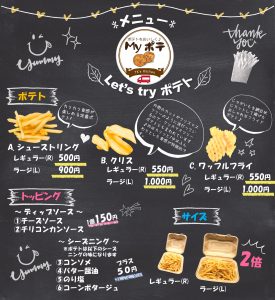 メニュー
thank you
yummy
Myポテ
Let's try ポテト
ポテト
A.シューストリング
レギュラー(R) 500円
ラージ(L) 900円
B.クリス
レギュラー(R) 550円
ラージ(L) 1,000円
C.ワッフルフライ
レギュラー(R) 550円
ラージ(L) 1,000円
トッピング
～ ディップソース ～
①チーズソース
②チリコンカンソース
150円
～ シーズニング ～
③コンソメ
④バター醤油
⑤のり塩
⑥コーンポタージュ
プラス
50円
サイズ
2倍
レギュラー(R)
ラージ(L)
yummy